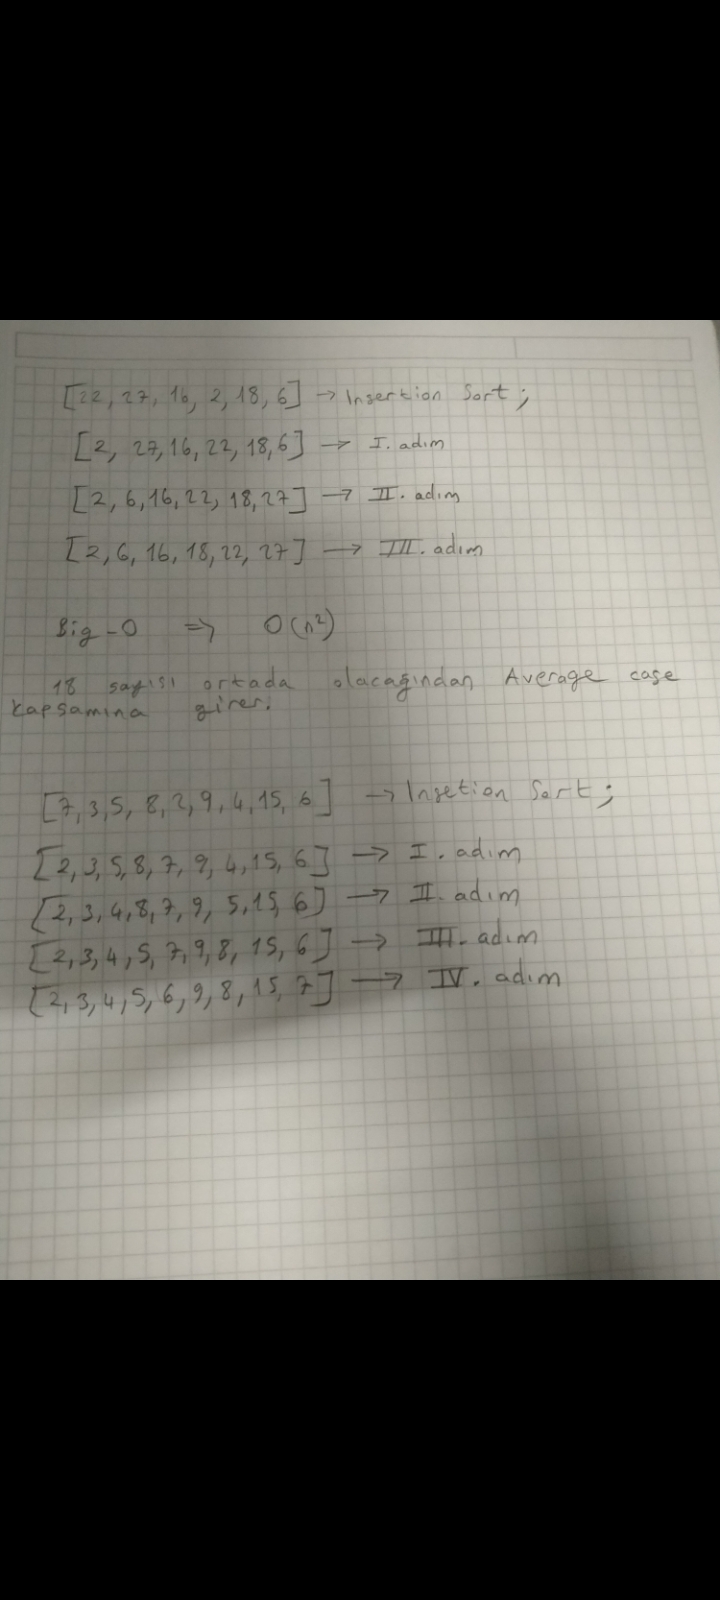 [22, 27, 16, 2, 18, 6] → Insertion Sort;
[2, 27, 16, 22, 18, 6] → I. adım
[2, 6, 16, 22, 18, 27] → II. adım
[2, 6, 16, 18, 22, 27] → III. adım
Big-O ⇒ O(n²)
18 sayısı ortada olacağından Average case
kapsamına girer.
[7, 3, 5, 8, 2, 9, 4, 15, 6] → Insetion Sort;
[2, 3, 5, 8, 7, 9, 4, 15, 6] → I. adım
[2, 3, 4, 8, 7, 9, 5, 15, 6] → II. adım
[2, 3, 4, 5, 7, 9, 8, 15, 6] → III. adım
[2, 3, 4, 5, 6, 9, 8, 15, 7] → IV. adım